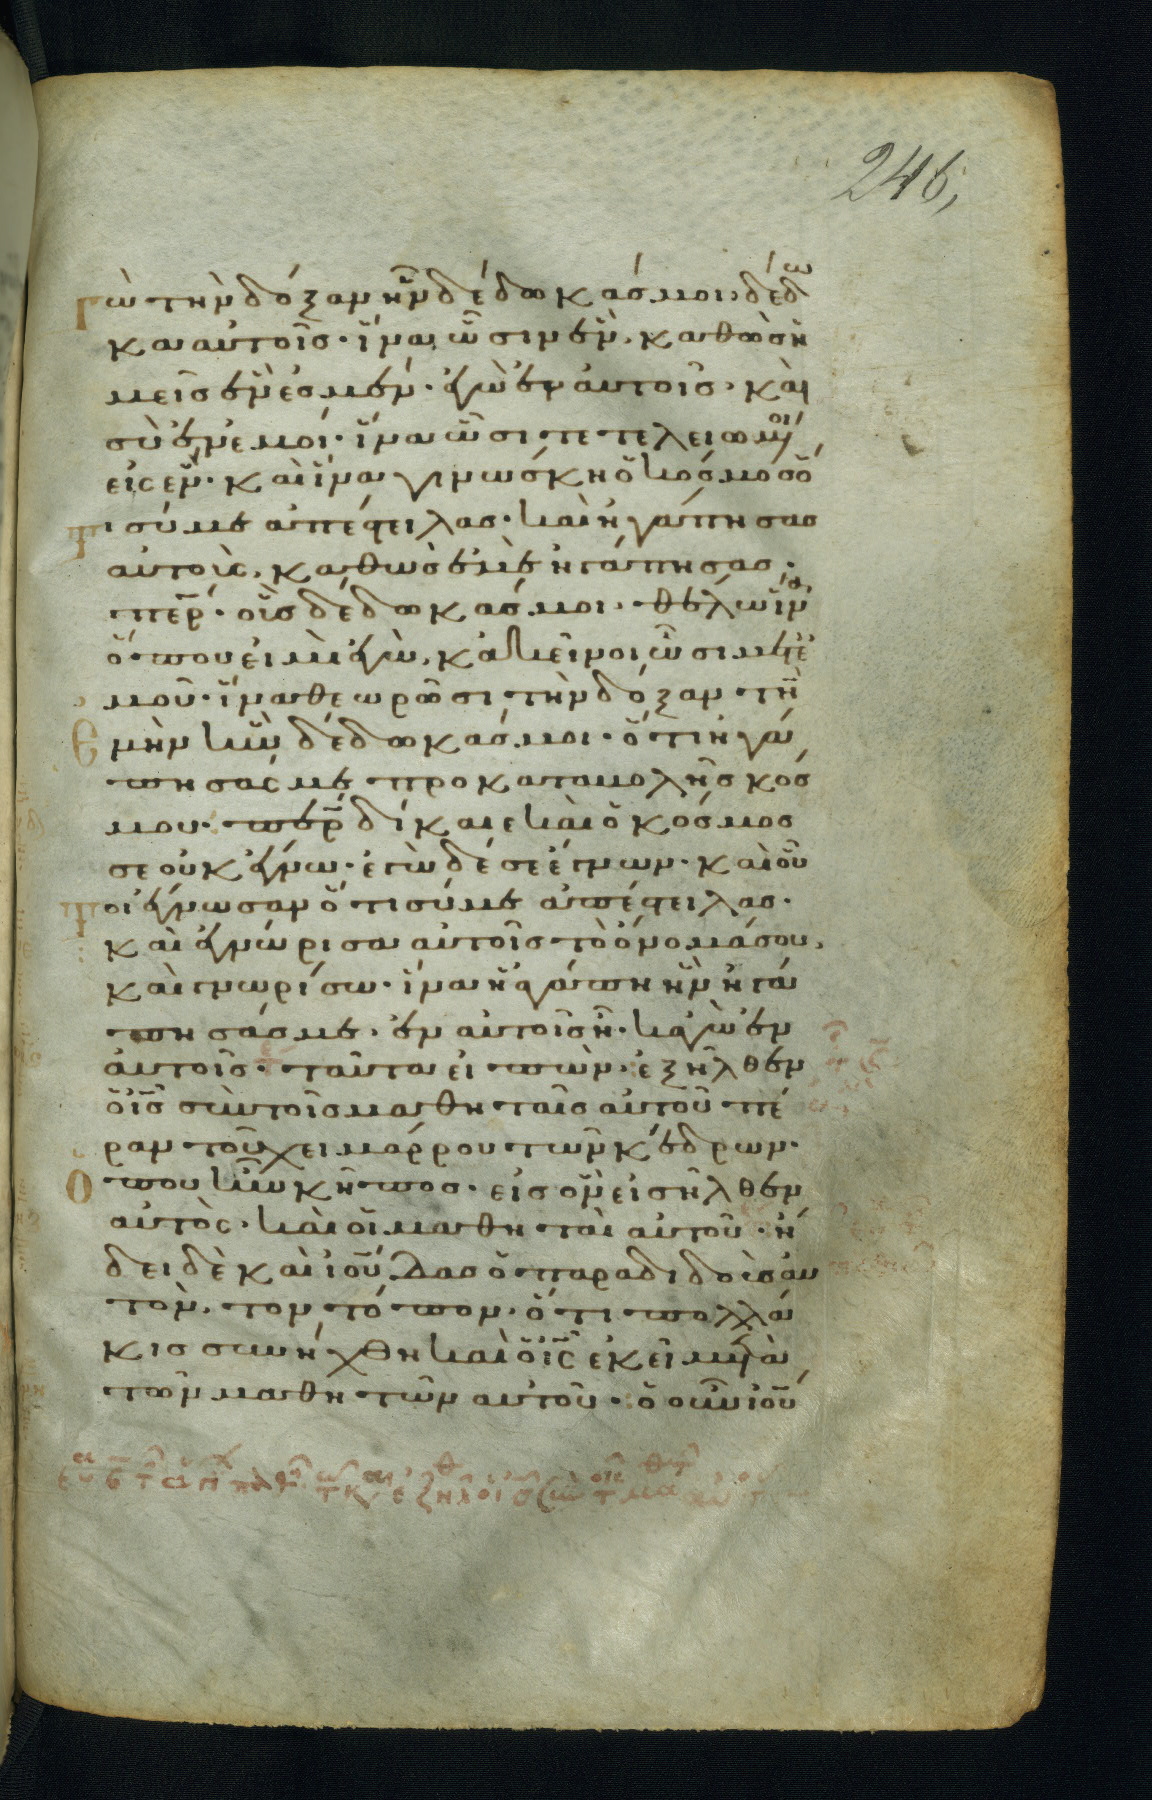 246,
γὼ τὴν δόξαν ἣν δέδωκάσ μοι, δέδω
κα αὐτοῖσ· ἵνα ὦσιν ἕν, καθὼσ ἡ
μεῖσ ἕν ἐσμεν· ἐγὼ ἐν αὐτοῖσ· καὶ
σὺ ἐν ἐμοί· ἵνα ὦσι τετελειωμένοι
εἰς ἕν· καὶ ἵνα γινώσκη ὁ κόσμοσ ὅ
τι σύ με ἀπέστειλασ· καὶ ἠγάπησασ
αὐτοὺς, καθὼσ ἐμὲ ἠγάπησασ·
περ· οὓσ δέδωκάσ μοι· θέλω ἵνα
ὅπου εἰμὶ ἐγὼ, κἀκεῖνοι ὦσι μετ ἐ
μοῦ· ἵνα θεωρῶσι τὴν δόξαν τὴν
ἐμὴν ἣν δέδωκάσ μοι· ὅτι ἠγά
πησάς με προ καταβολῆσ κόσ
μου· περ δίκαιε καὶ ὁ κόσμοσ
σε οὐκ ἔγνω· ἐγὼ δέ σε ἔγνων· καὶ οὗ
τοι ἔγνωσαν ὅτι σύ με ἀπέστειλασ·
καὶ ἐγνώρισα αὐτοῖσ τὸ ὄνομά σου,
καὶ γνωρίσω· ἵνα ἡ ἀγάπη ἣν ἠγά
πησάσ με· ἐν αὐτοῖσ ἦ· κἀγὼ ἐν
αὐτοῖσ· ταῦτα εἰπὼν· ἐξῆλθεν
ὁ ισ σὺν τοῖσ μαθηταῖσ αὐτοῦ πέ
ραν τοῦ χειμάρρου τῶν κέδρων·
ὅπου ἦν κῆποσ· εἰσ ὃν εἰσῆλθεν
αὐτὸς· καὶ οἱ μαθηταὶ αὐτοῦ· ἤ
δει δὲ καὶ ἰούδασ ὁ παραδιδοὺσ αὐ
τὸν, τον τόπον· ὅτι πολλά
κισ συνήχθη καὶ ὁ ις ἐκεῖ μετὰ
τῶν μαθητῶν αὐτοῦ· ὁ οὖν ἰού